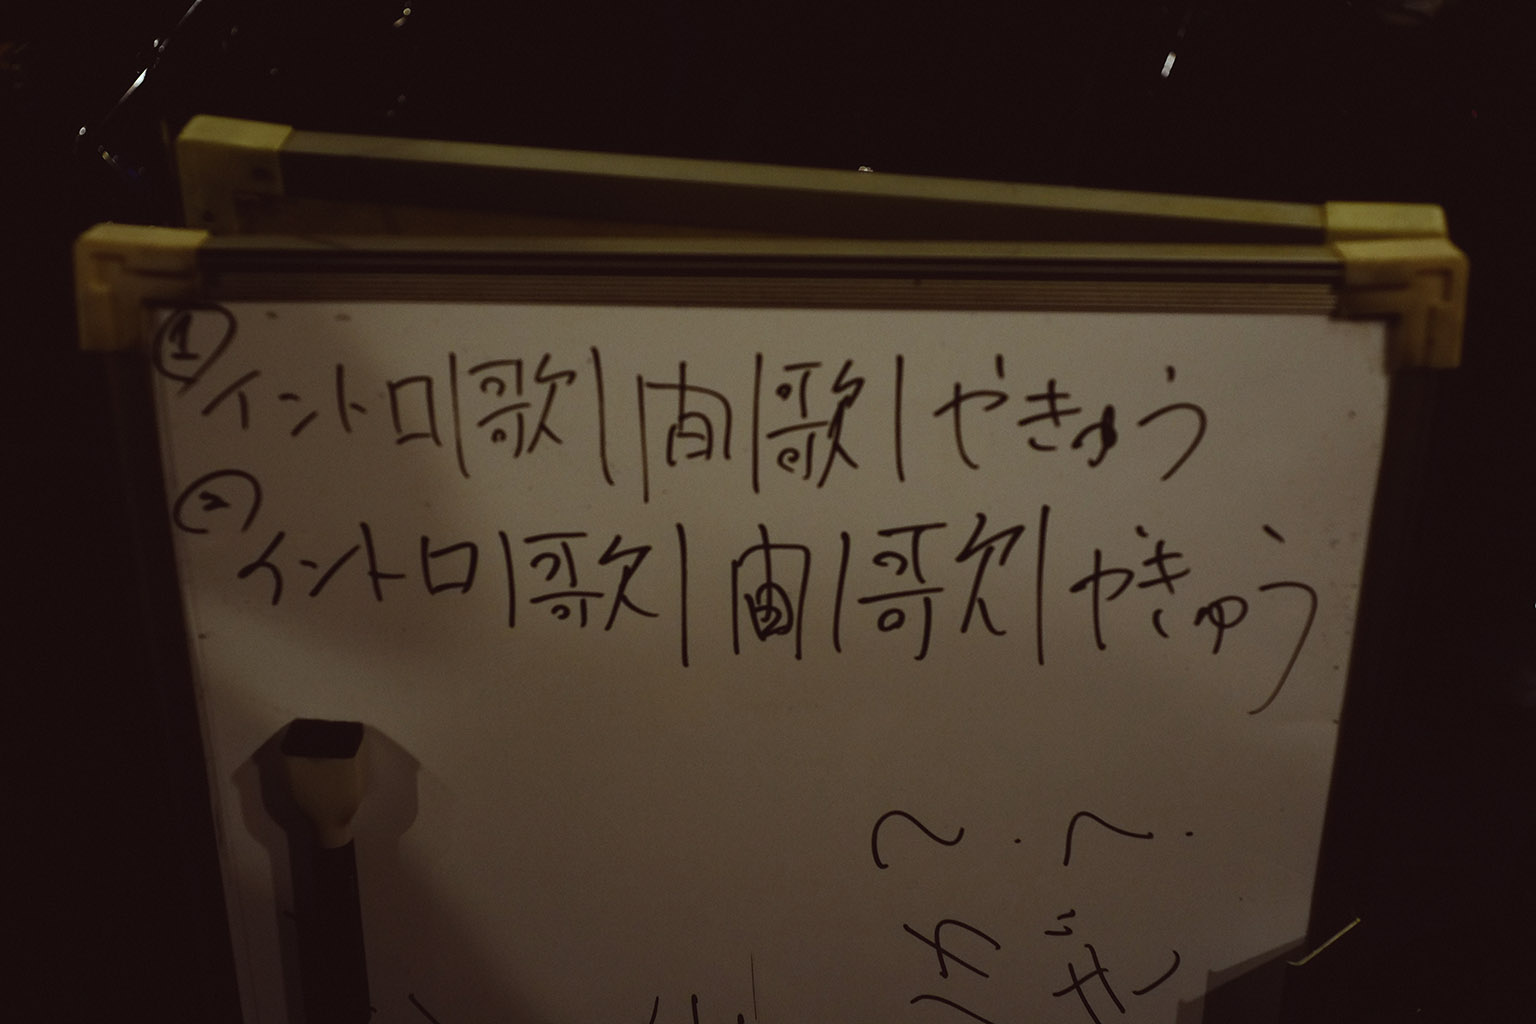 ① イントロ|歌|間|歌|やきゅう
② イントロ|歌|間|歌|やきゅう